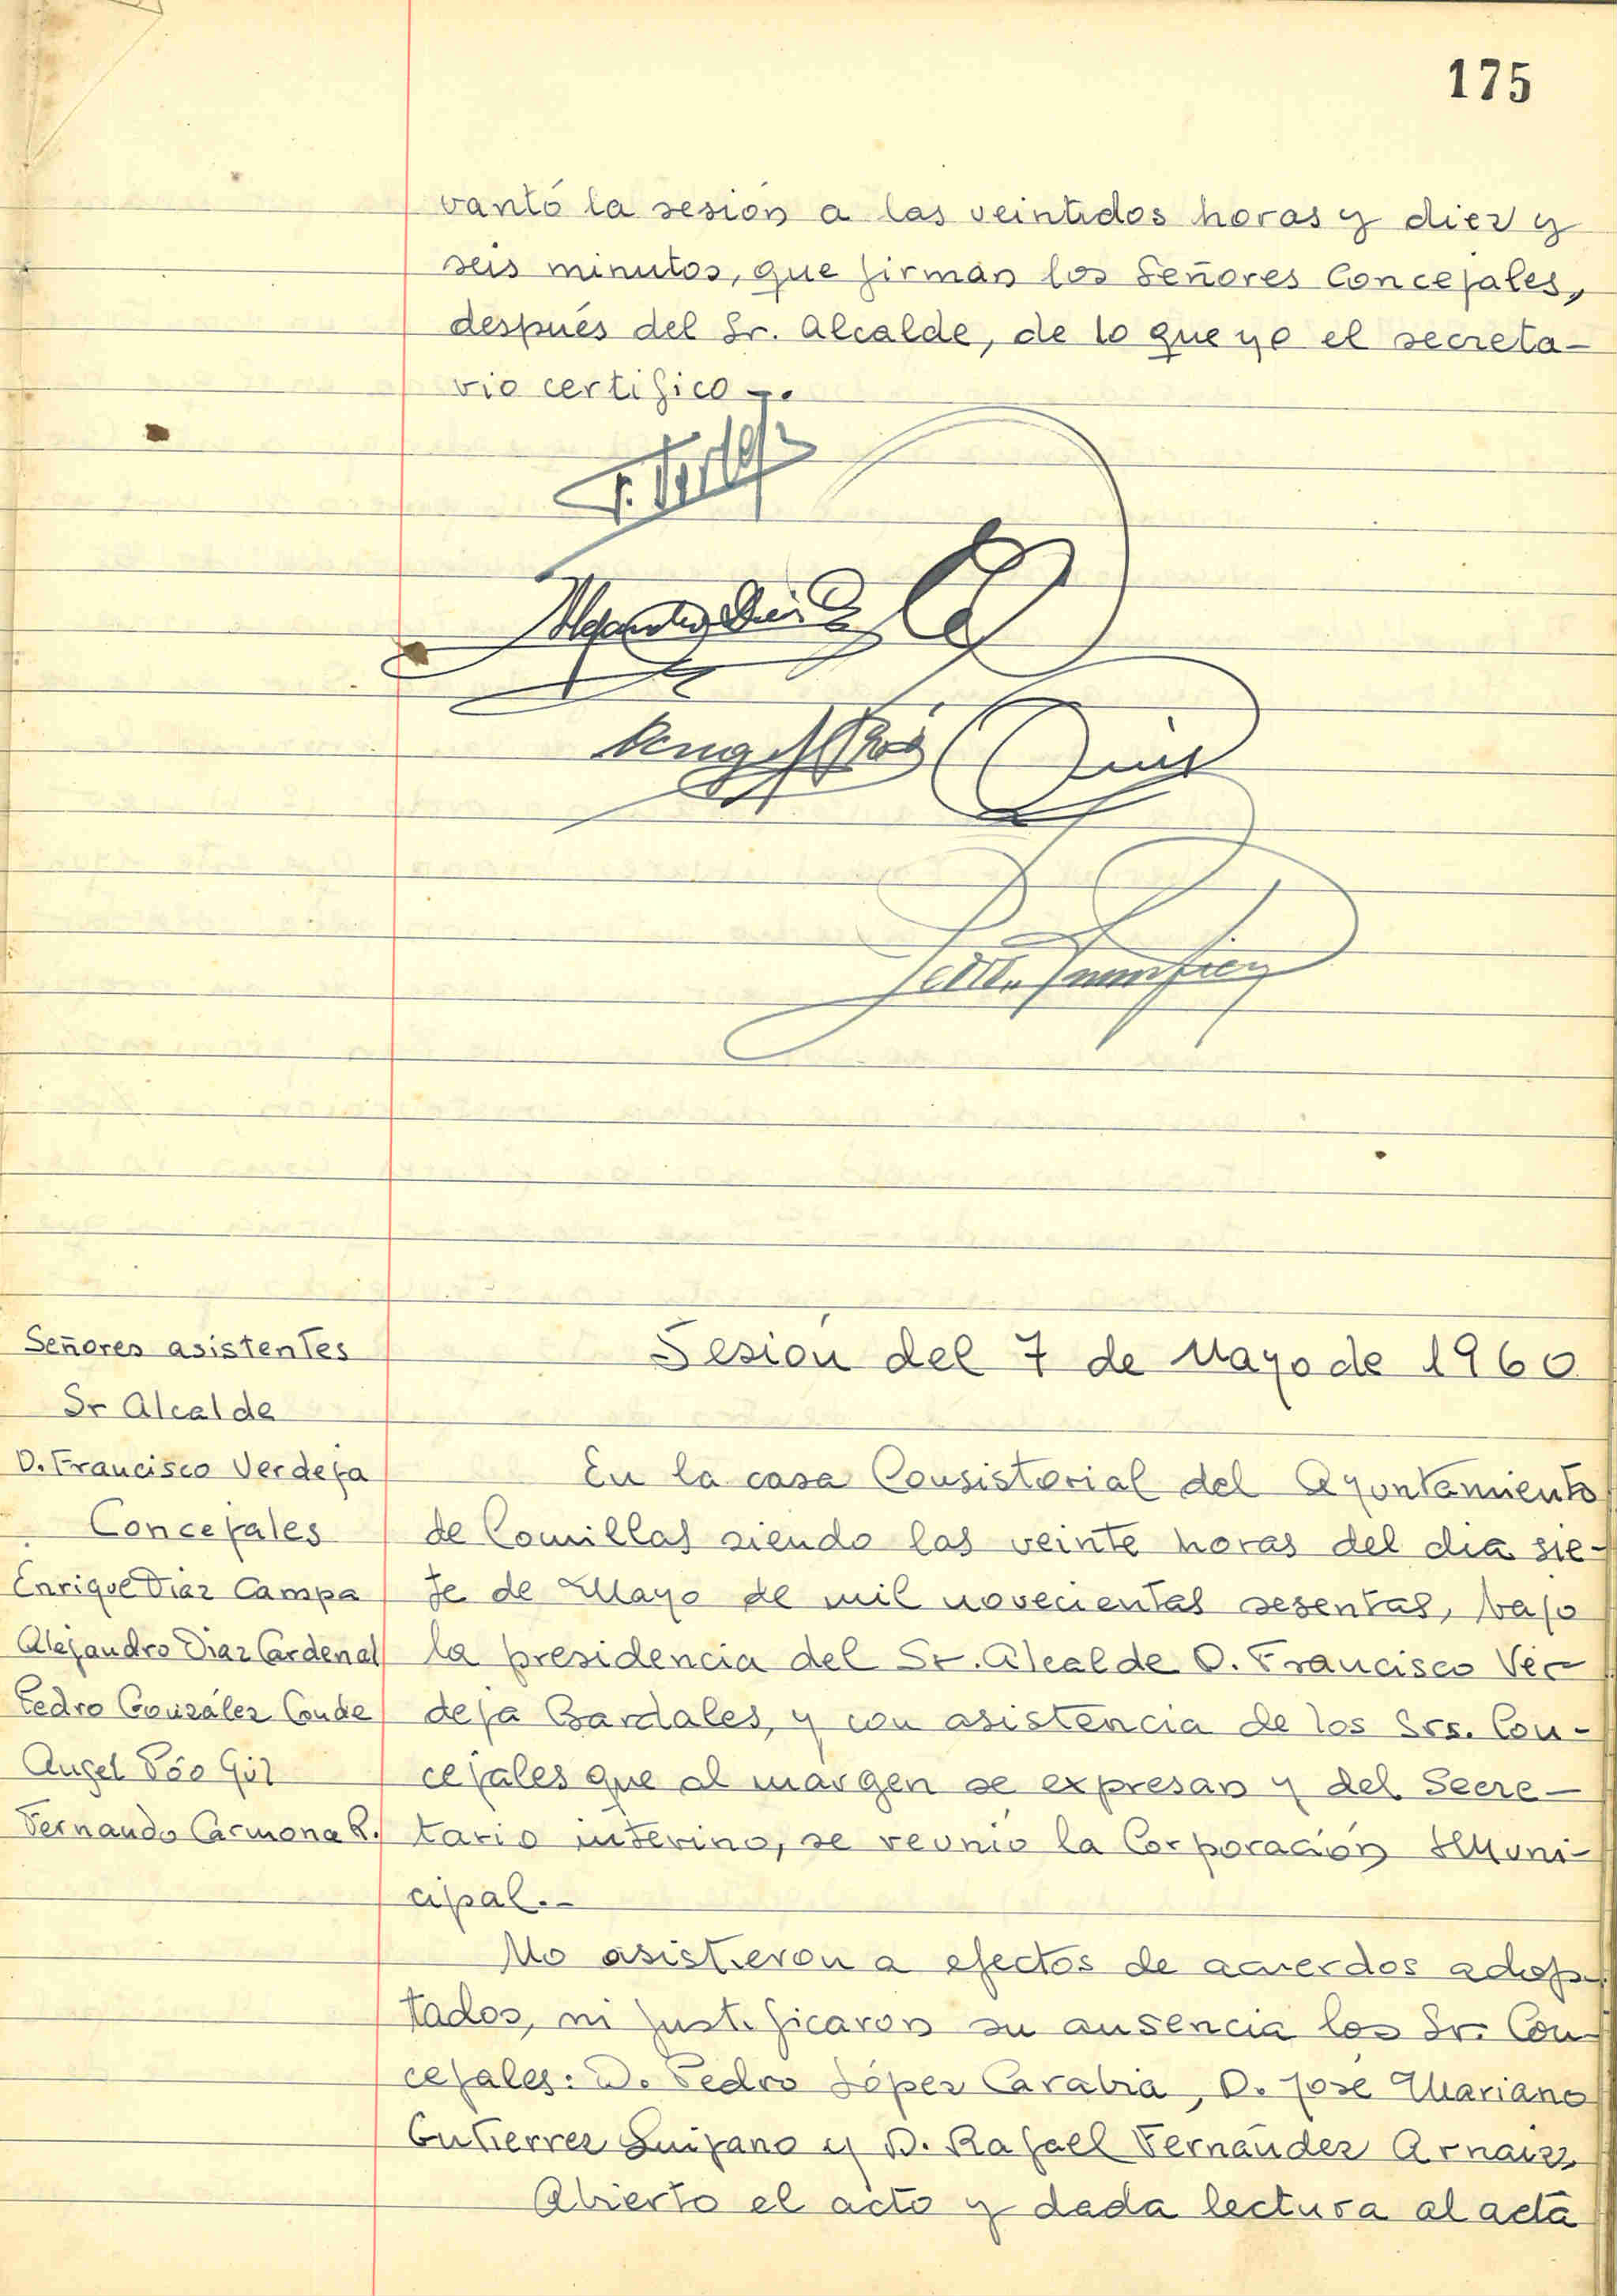 175
vantó la sesión a las veintidos horas y diez y
seis minutos, que firman los Señores Concejales,
después del Sr. Alcalde, de lo que yo el secreta-
rio certifico -.
Señores asistentes
Sr Alcalde
D. Francisco Verdeja
Concejales
Enrique Diaz Campa
Alejandro Diaz Cardenal
Pedro González Conde
Angel Póo Gil
Fernando Carmona R.
Sesión del 7 de Mayo de 1960
En la casa Consistorial del Ayuntamiento
de Comillas siendo las veinte horas del dia sie-
te de Mayo de mil novecientas sesentas, bajo
la presidencia del Sr. Alcalde D. Francisco Ver
deja Bardales, y con asistencia de los Srs. Con-
cejales que al margen se expresan y del Secre-
tario interino, se reunió la Corporación Muni-
cipal.-
No asistieron a efectos de acuerdos adop-
tados, ni justificaron su ausencia los Sr. Con
cejales: D. Pedro López Carabia, D. José Mariano
Gutierrez Quijano y D. Rafael Fernández Arnaiz
Abierto el acto y dada lectura al acta